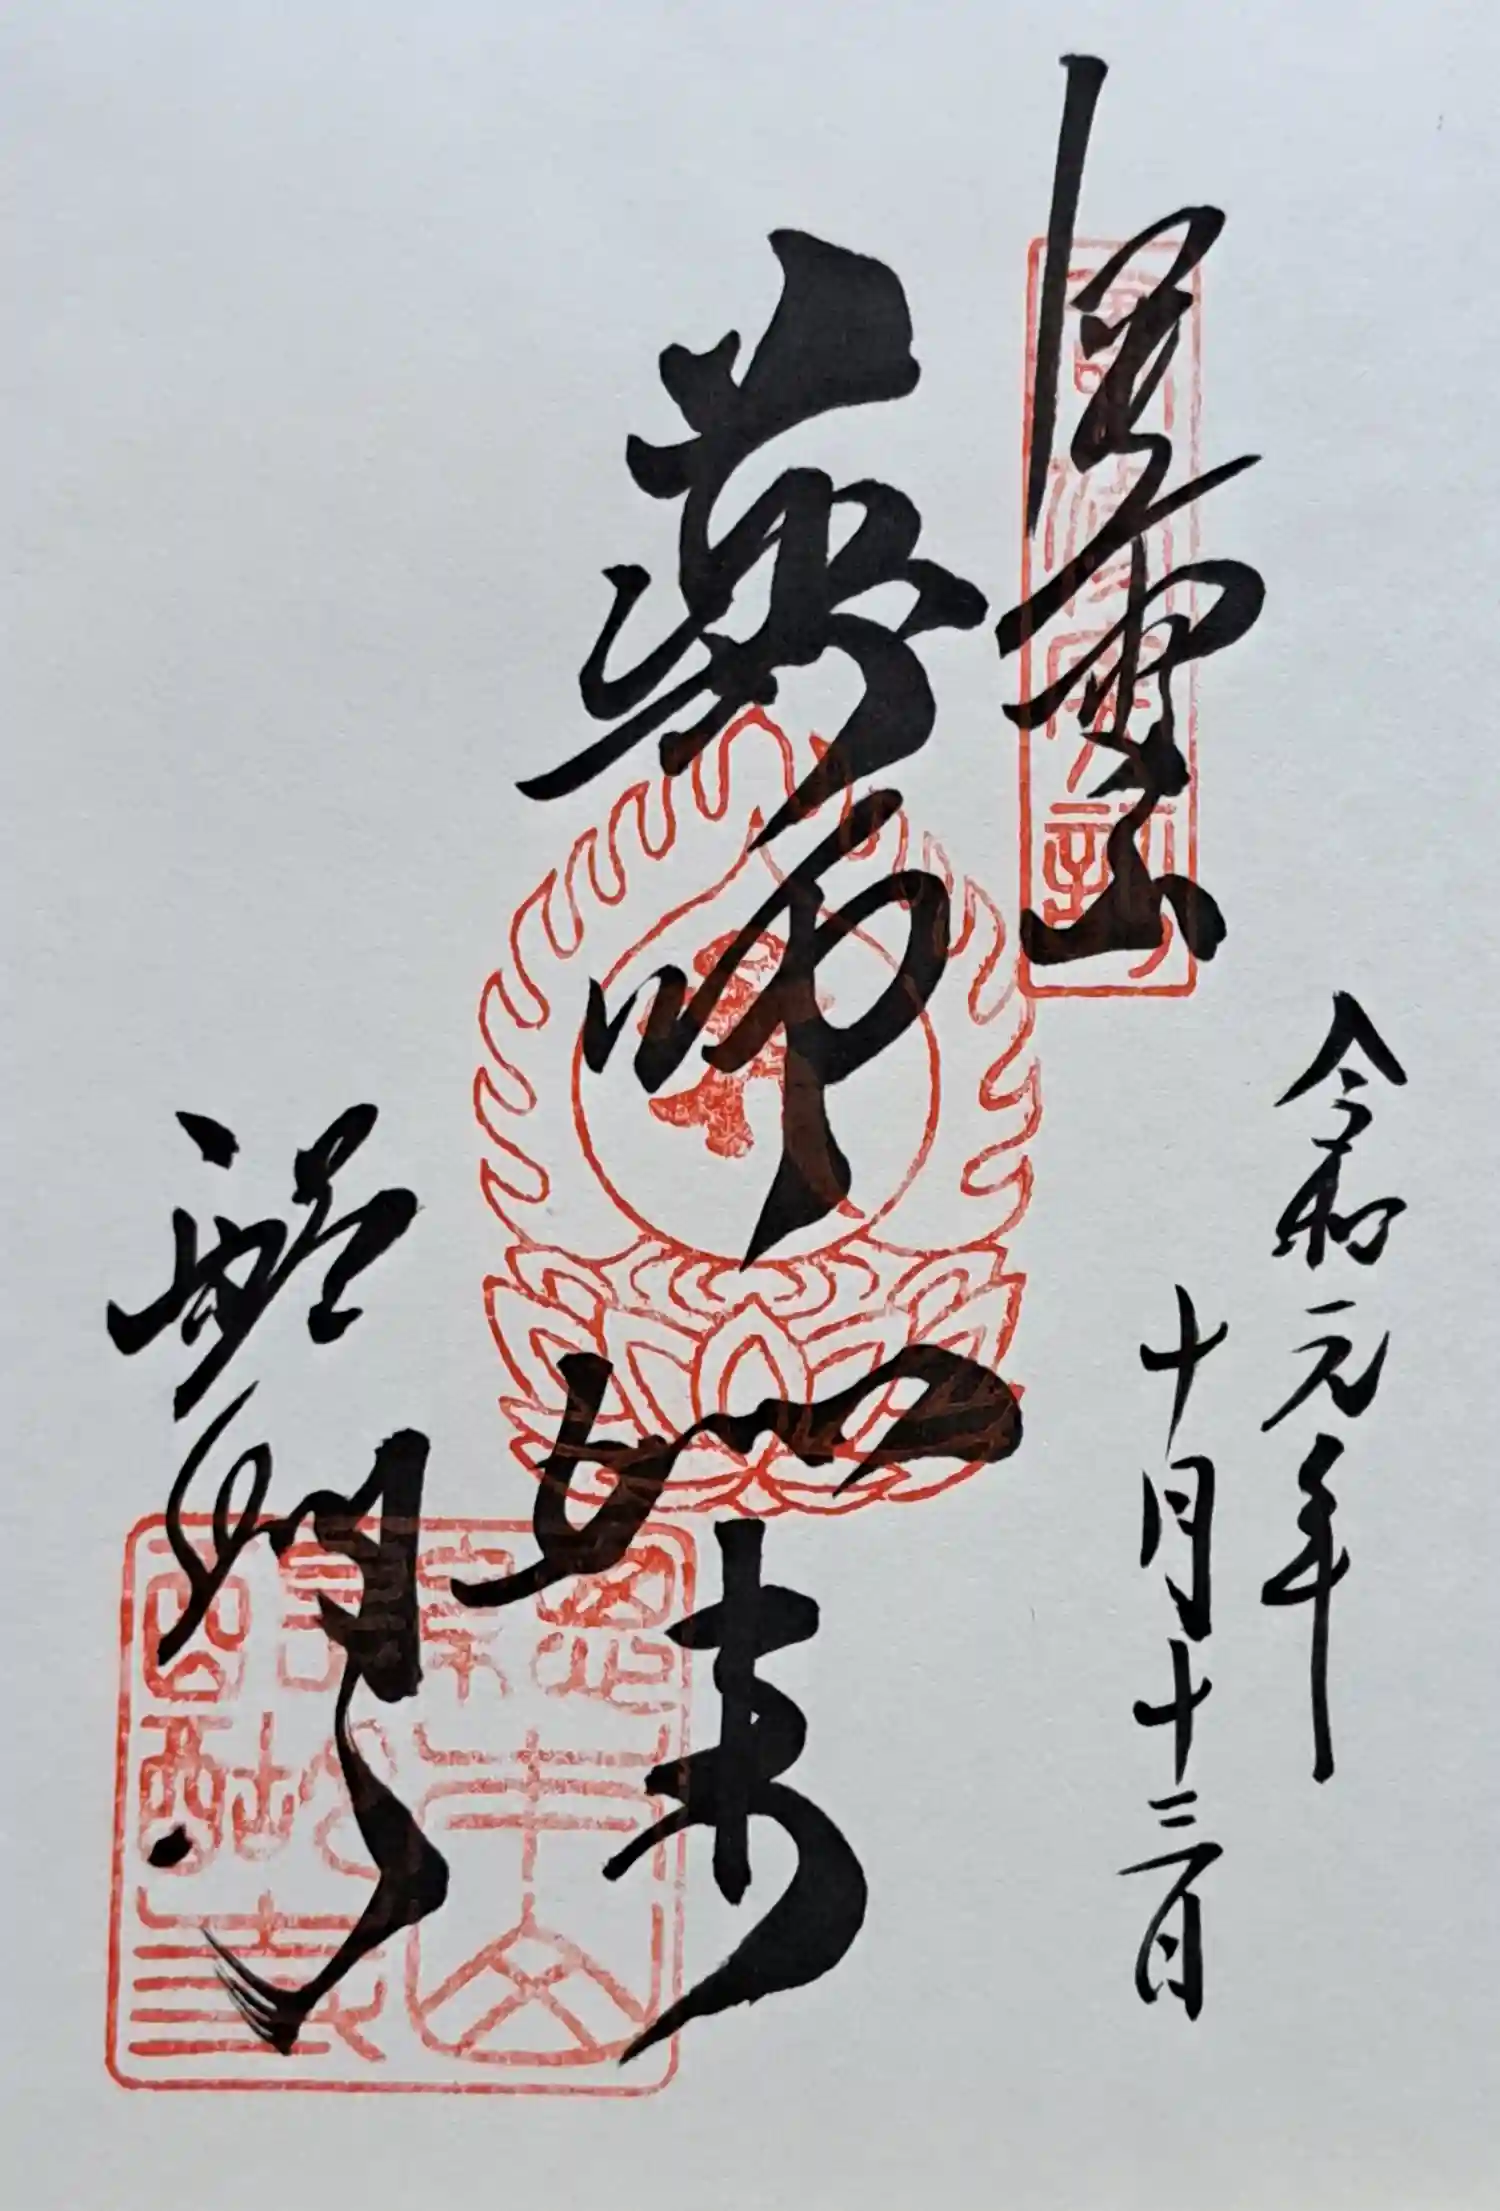 深雪山
令和元年
十月十三日
薬師如来
醍醐寺